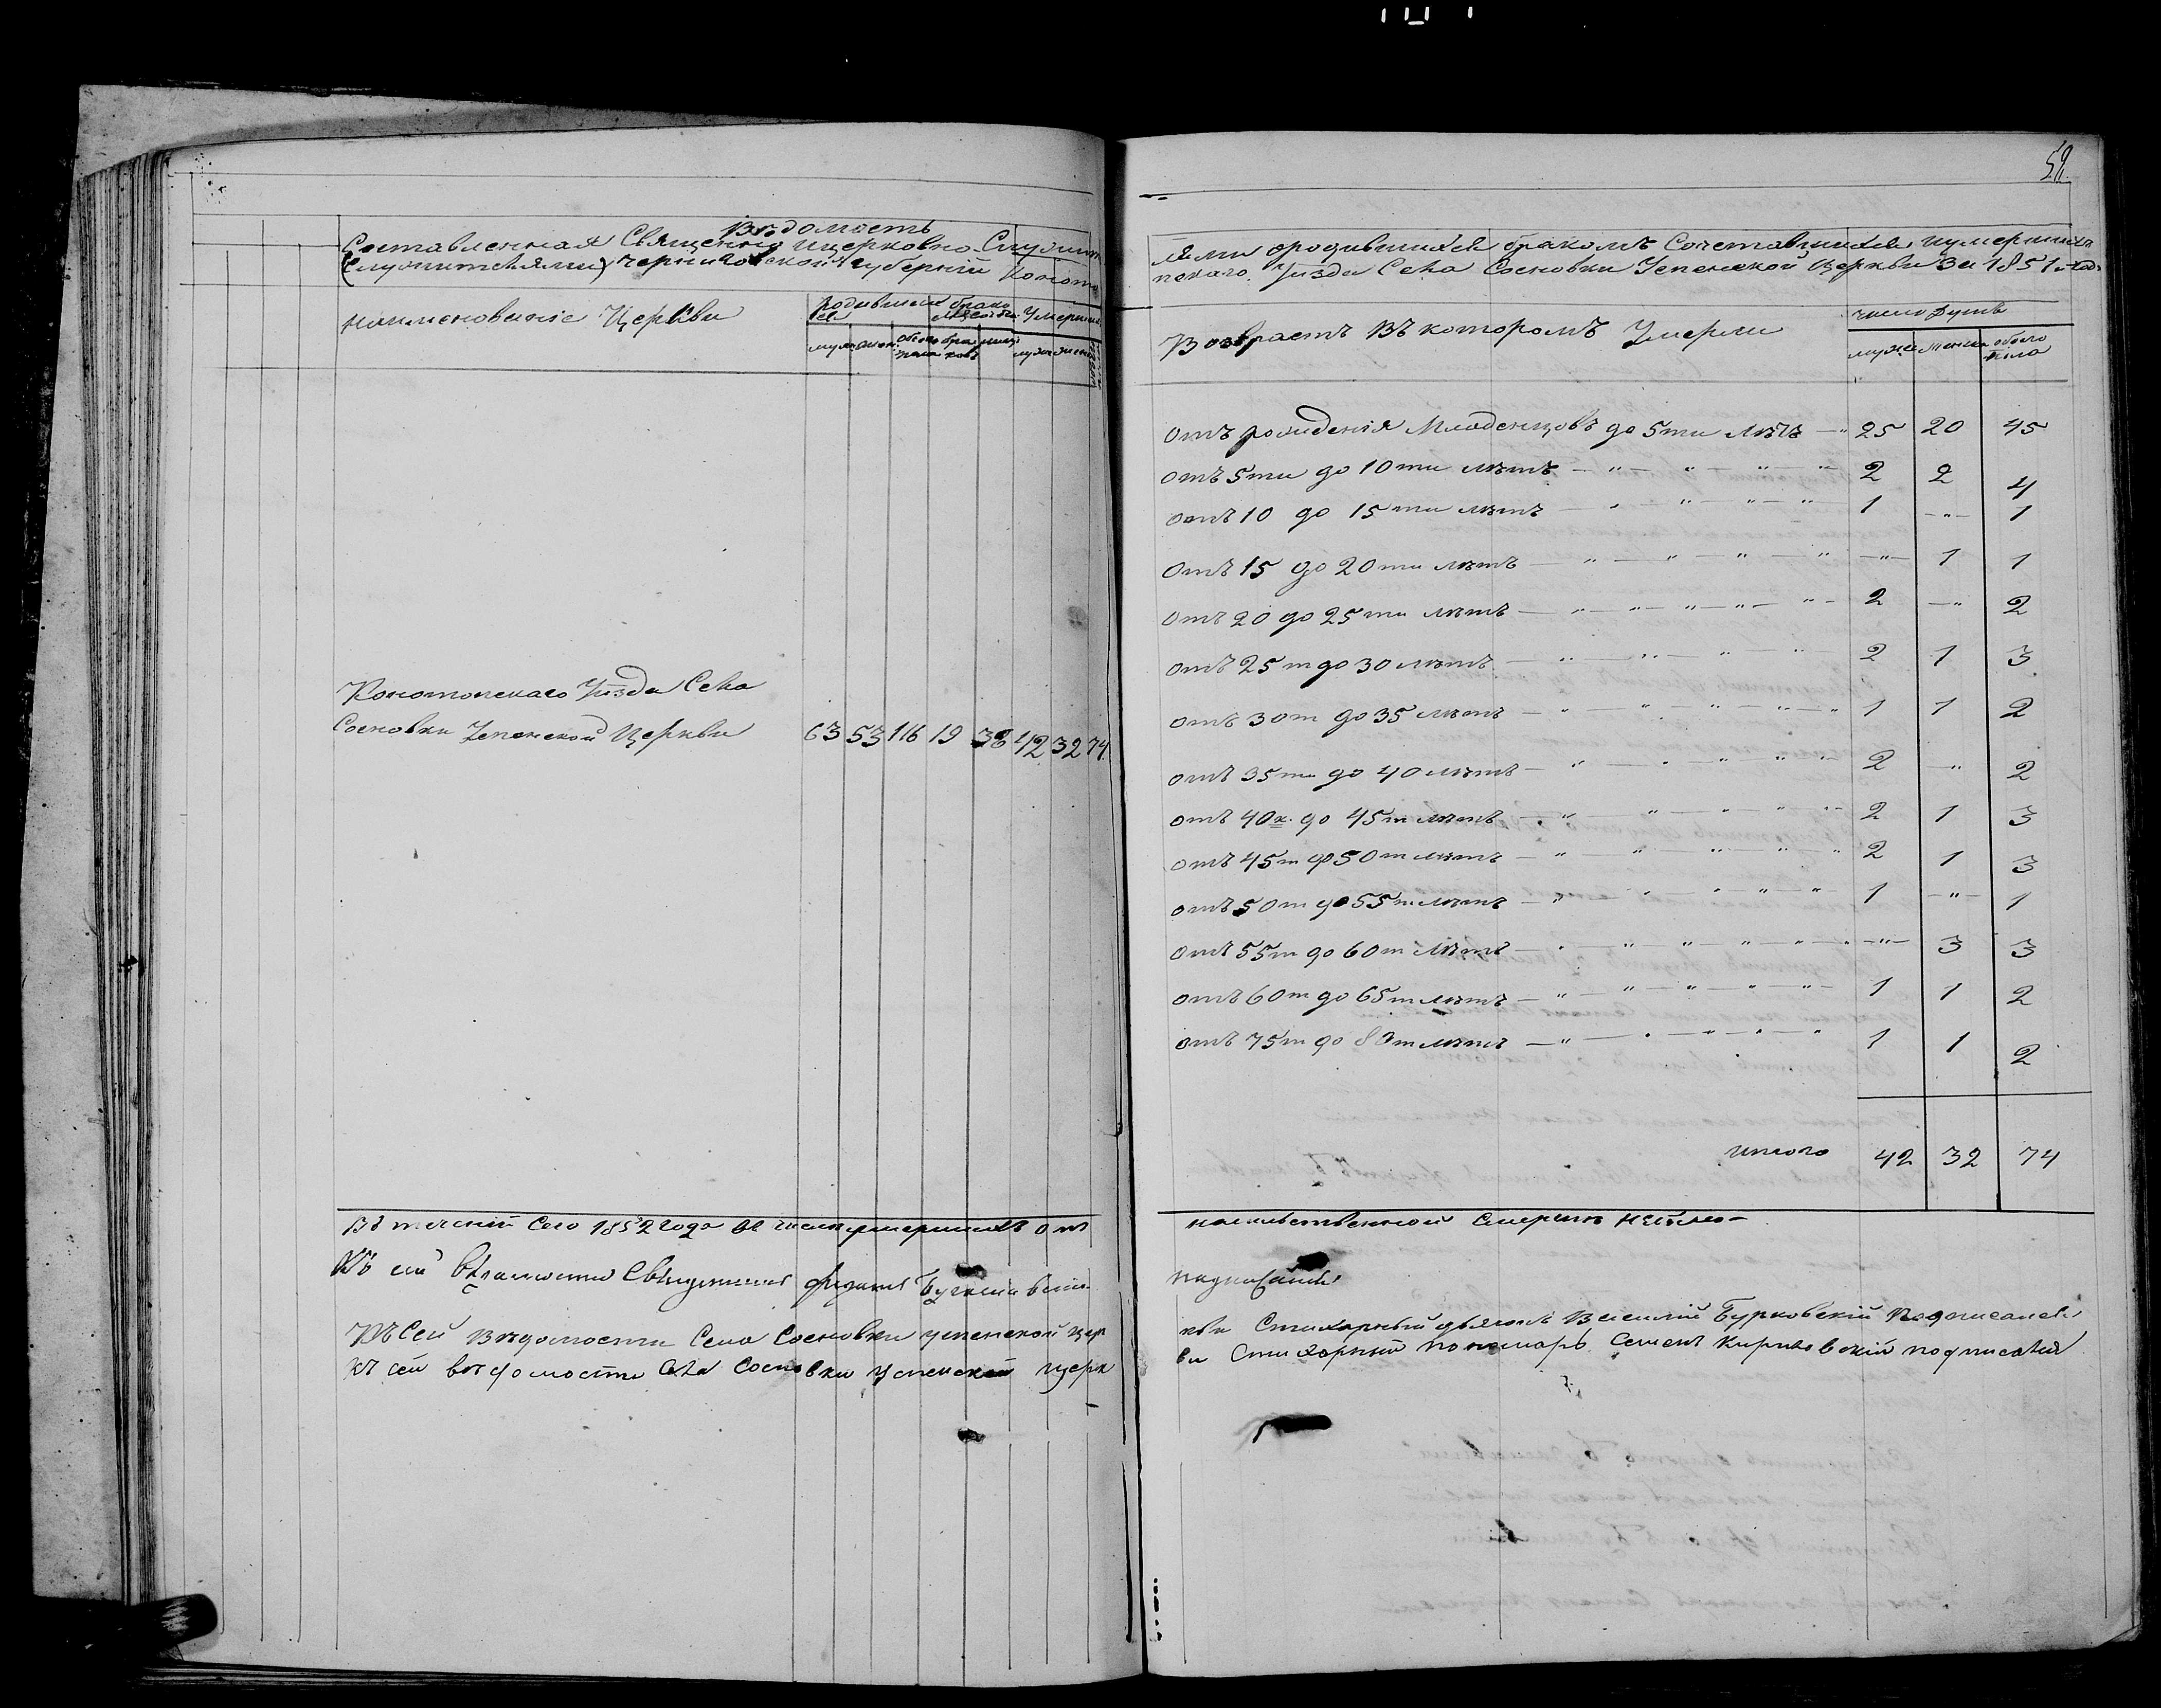 52
Вѣдомость
Составленная Священно ицерковно Служит
Служителями) Черниговской губерніи Коното
лями ородившихся бракомъ Сочетавшихся иумершихъ
пскаго Уѣзда Села Сосновки Успенской Церкви За 1851 год
Наименованіе Церкви
Родивших ся
брако
Умерших
муж. жен. обоего пола бра ковъ лицъ муж жен
Возврастъ Въ которомъ Умерли
число душъ
мужеск женска обоего пола
отъ рожденія Младенцовъ до 5ти лѣтъ 25 20 45
отъ 5ти до 10ти лѣтъ 2 2 4
отъ 10 до 15ти лѣтъ 1 " 1
отъ 15 до 20ти лѣтъ " 1 1
отъ 20 до 25ти лѣтъ 2 " 2
отъ 25т до 30 лѣтъ 2 1 3
отъ 30т до 35 лѣтъ 1 1 2
отъ 35ти до 40 лѣтъ 2 " 2
отъ 40к. до 45т лѣтъ 2 1 3
отъ 45т до 50т лѣтъ 2 1 3
отъ 50т до 55т лѣтъ 1 " 1
отъ 55т до 60т лѣтъ " 3 3
отъ 60т до 65т лѣтъ 1 1 2
отъ 75т до 80т лѣтъ 1 1 2
итого 42 32 74
Конотопскаго Уѣзда Села
Сосновки Успенской Церкви 63 53 116 19 38 42 32 74
Въ теченіи Сего 1852 года въ числѣ умершихъ отъ насильственной Смерти небыло
Къ сей вѣдомости Священникъ подписался
Къ Сей Вѣдомости Села Сосновки успенской церкви Стихарный дьячокъ Василій Бурковскій Подписался
къ сей вѣдомости села Сосновки успенской церкви Стихарный пономарь Семенъ Кириловскій подписался